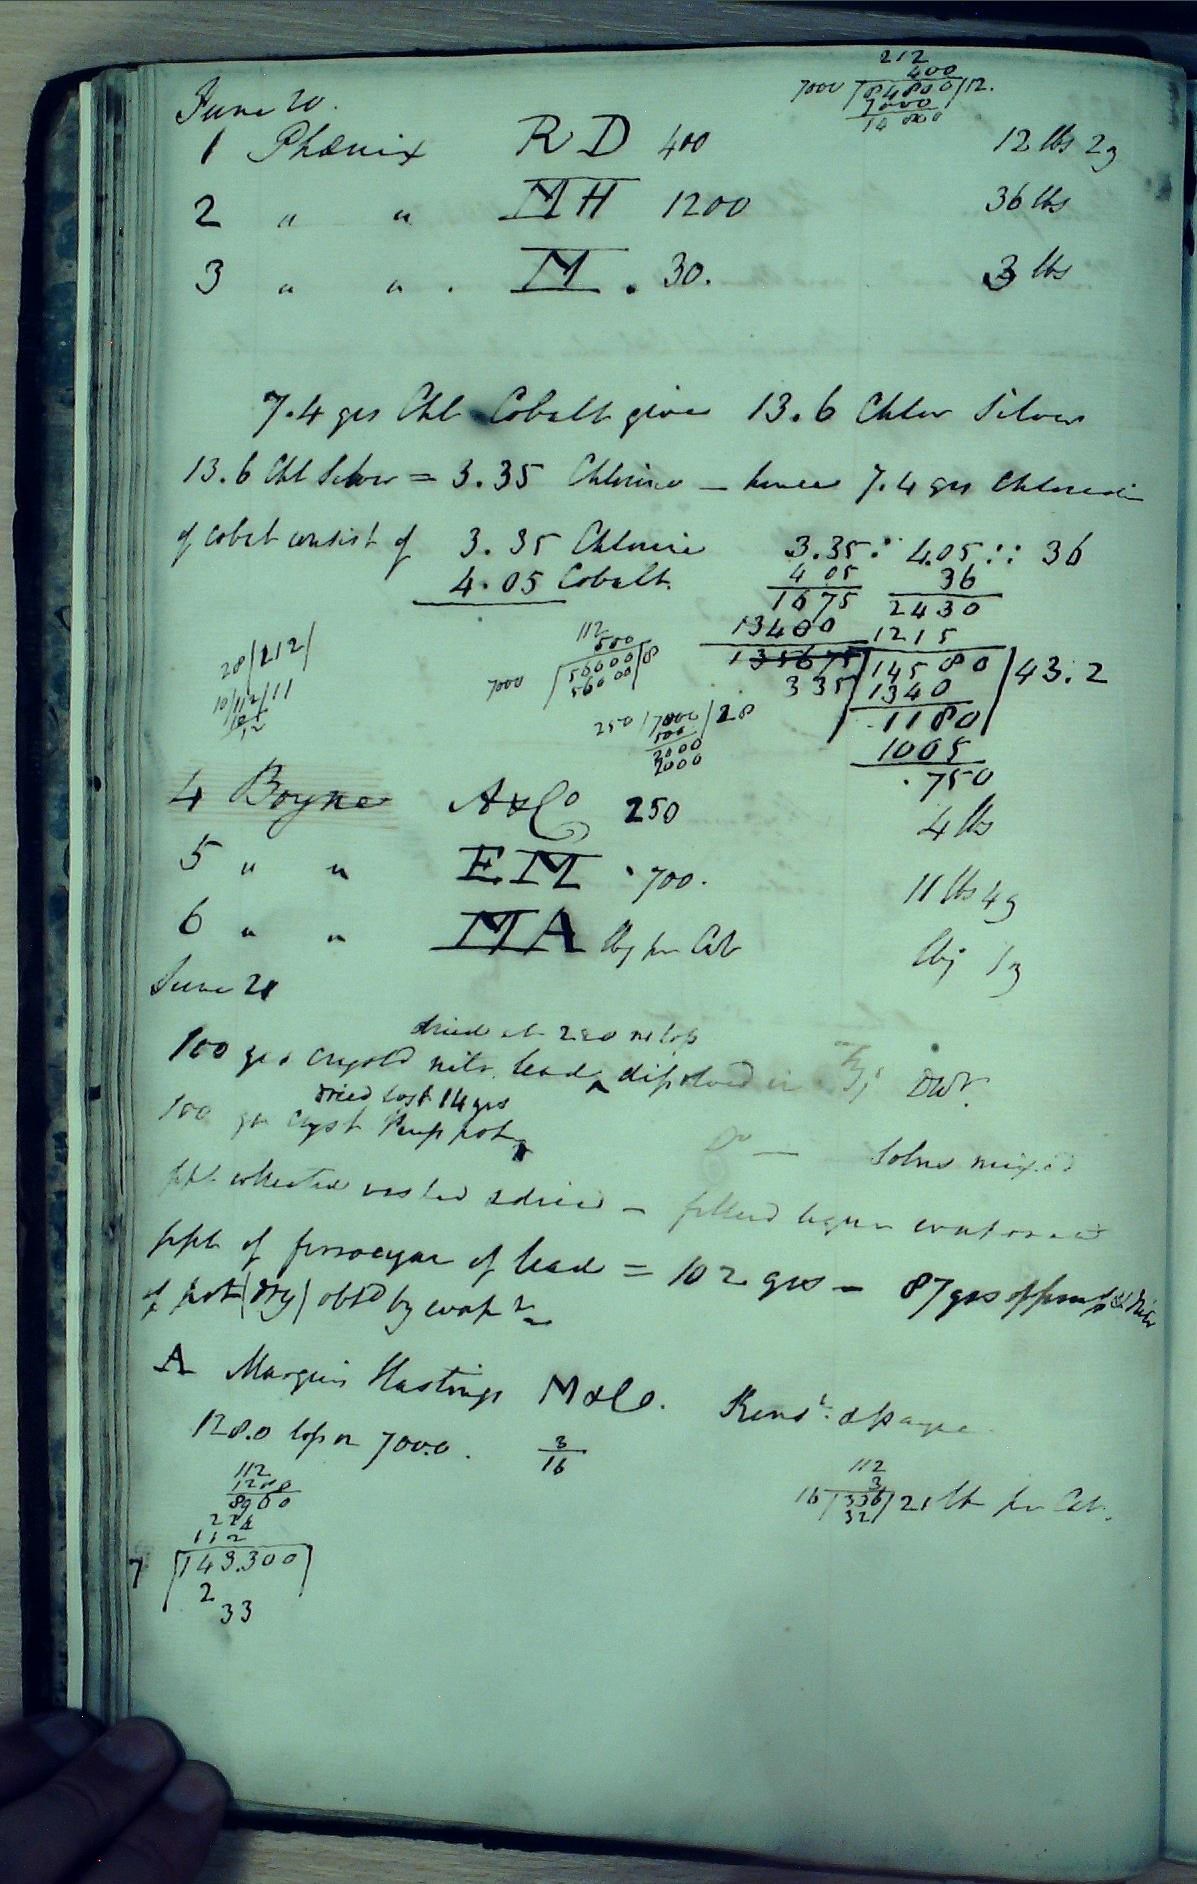 June 20.
212
400
7000 | 84800 | 12.
7000
14800
1 Phœnix RD 400 12 lbs 2g
2 " " MH 1200 36 lbs
3 " " . M . 30. 3 lbs
7.4 grs Chl Cobalt gives 13.6 Chlor Silver
13.6 Chl Silver = 3.35 Chlorine – hence 7.4 grs Chloride
of cobalt consist of 3.35 Chlorine 3.35 : 4.05 :: 36
4.05 Cobalt. 4 05 36
1675 2430
13400 1215
135675 14580 | 43.2
335 1340
1180
1005
.750
28 | 212 |
10 | 112 | 11
12
112
500
7000 | 56000 | 8
56000
250 | 7000 | 28
500
2000
2000
4 Boyne A&Co 250 4 lbs
5 " " EM . 700. 11 lbs 4g
6 " " MA lbj per Cwt lbj 1g
June 21
dried at 280 no loss
100 grs crystd nitr. lead ^ dissolved in DW.
dried lost 14 grs
100 gr cryst Prup pot ^ Do — Solns mixed
ppt collected washed & dried – filtered liquor evaporated
ppt of ferrocyan of lead = 102 grs –
of pot (dry) obtd by evapn
A Marquis Hastings M&Co.
128.0 loss on 7000. 3/16
112
1280
8960
224
112
7 | 143.300
2
33
112
3
16 | 336 | 21 lb per Cwt.
32